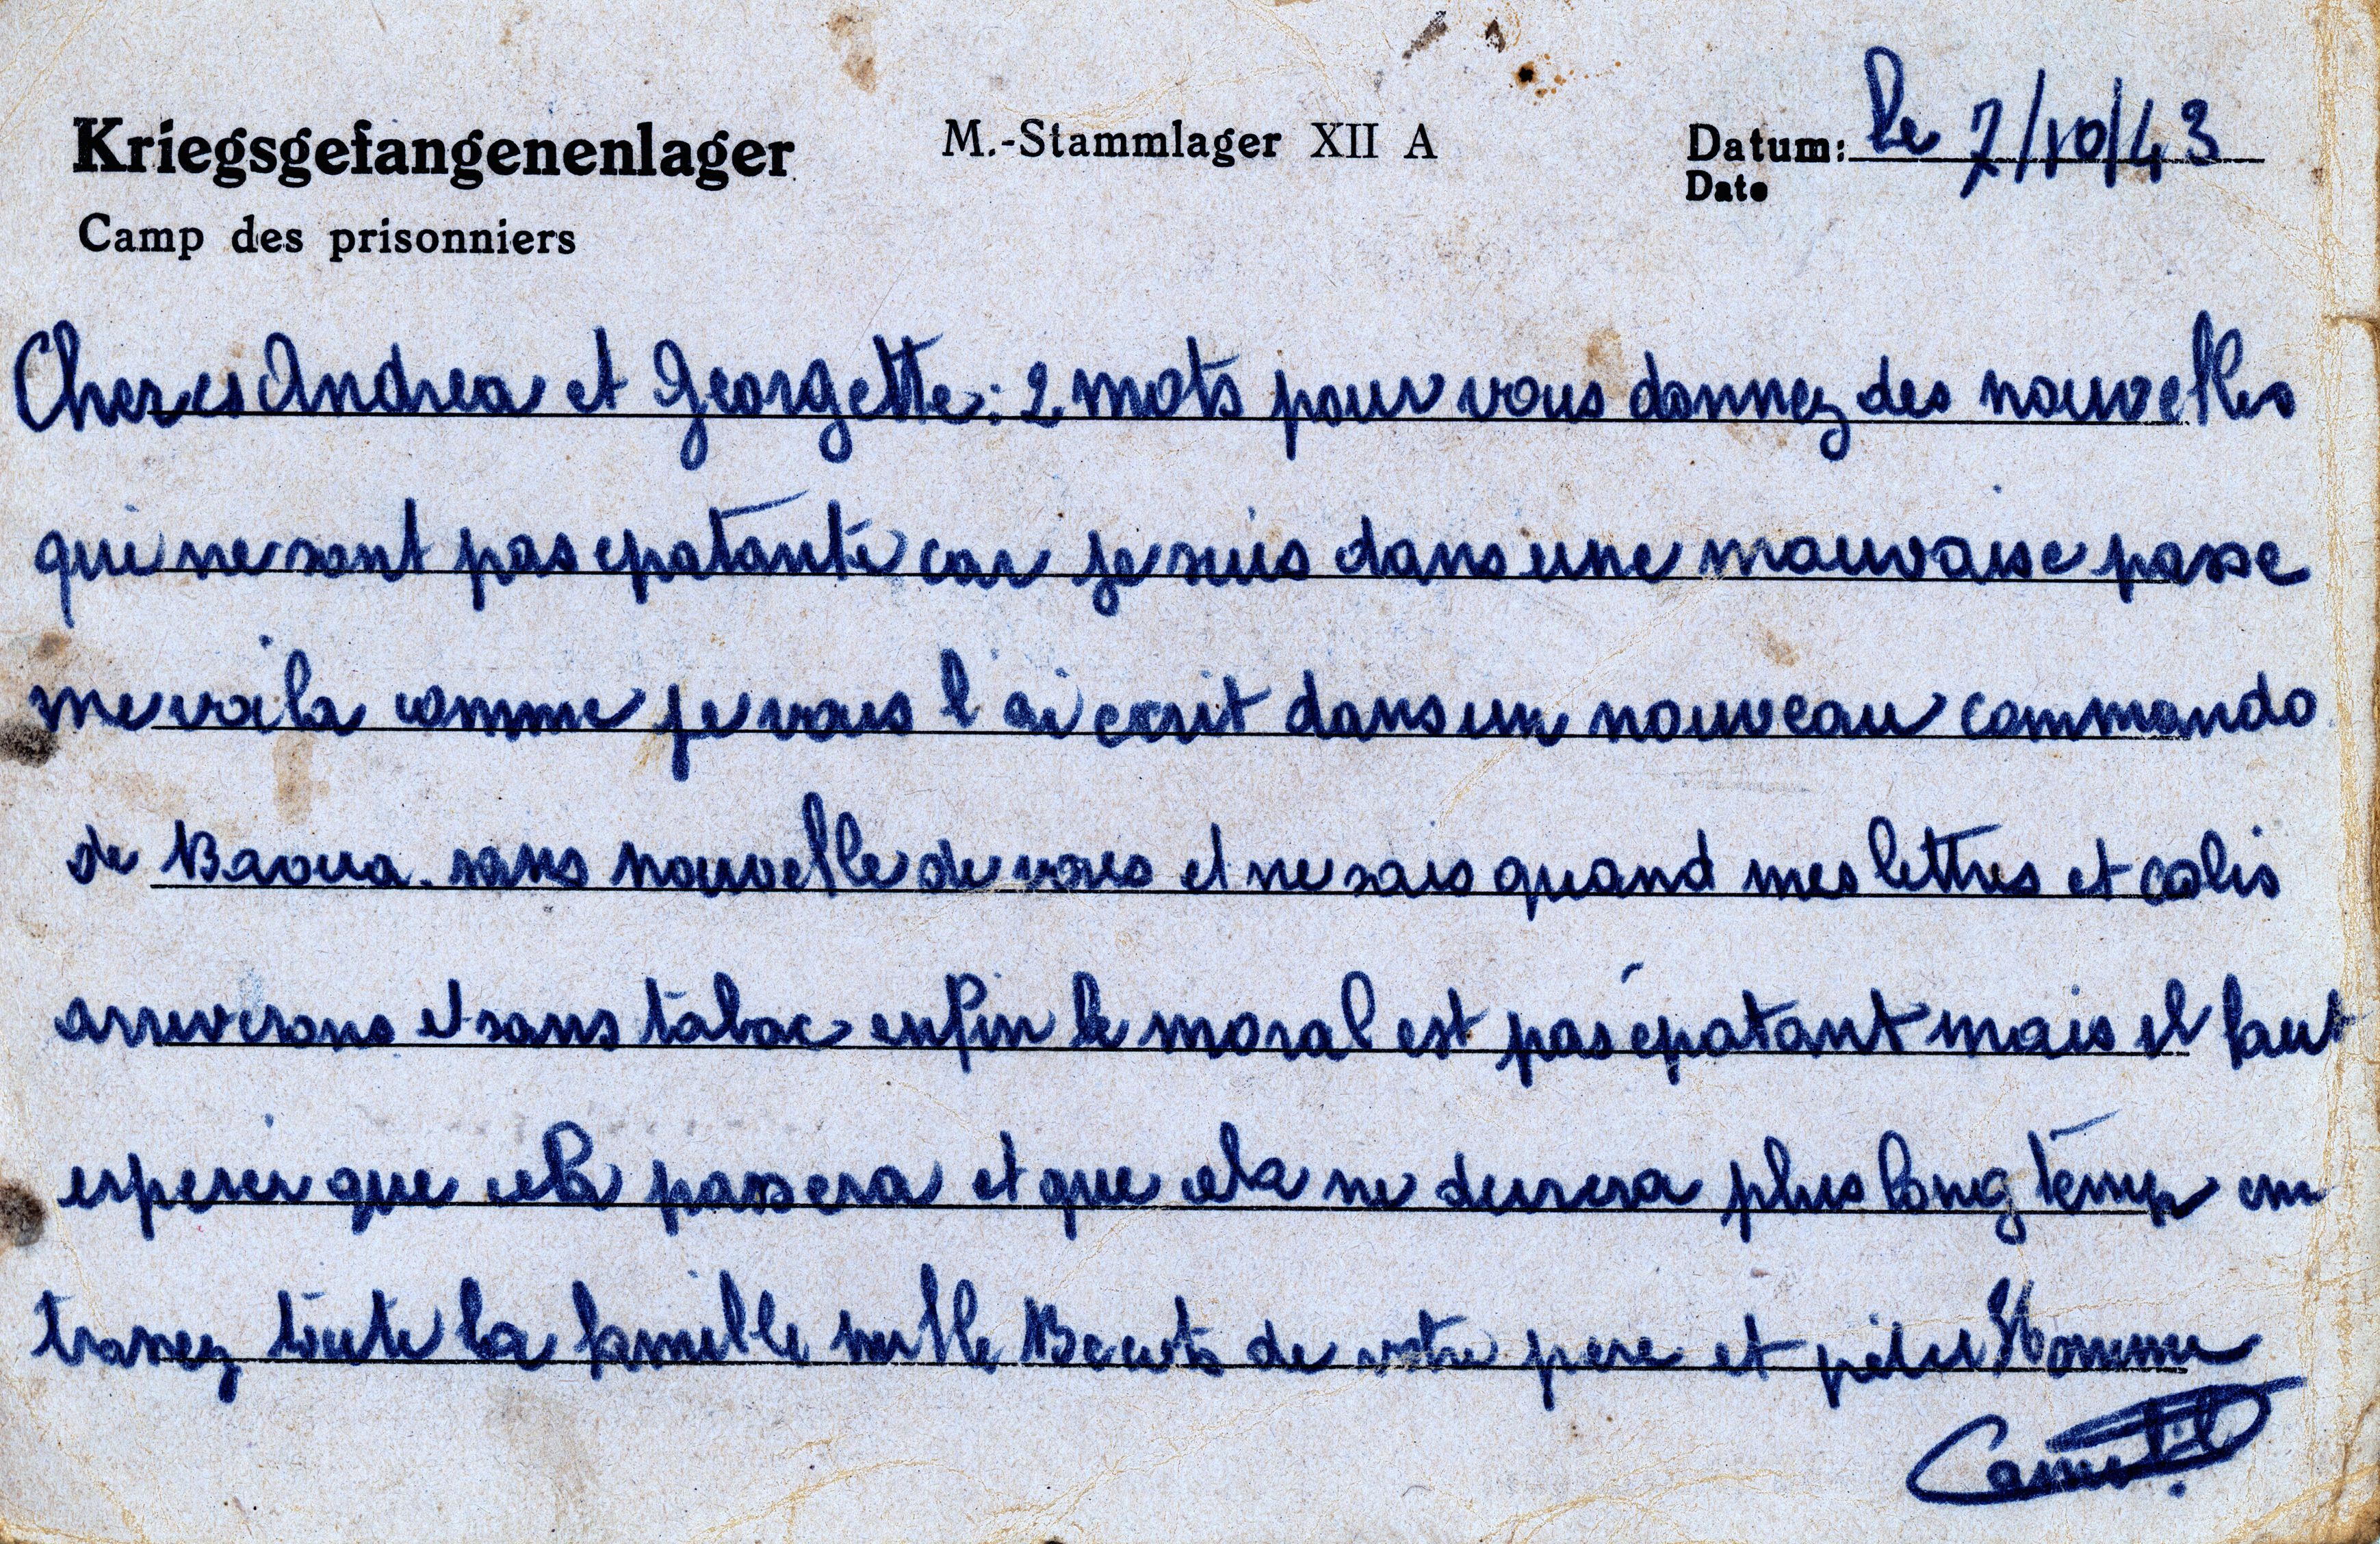 Kriegsgefangenenlager M.-Stammlager XII A Datum: le 7/10/43
Camp des prisonniers Date
Cheres Andrea et Georgette: 2 mots pour vous donnez des nouvelles
qui ne sont pas epatante car je suis dans une mauvaise passe
me voila comme je vous l ai ecrit dans un nouveau commando
de sans nouvelle de vous et ne sais quand mes lettres et colis
arriverons et sans tabac enfin le moral est pas épatant mais il faut
esperer que cela passera et que cela ne durera plus long temp em
brassez toute la famille mille de votre pere et petit Homme